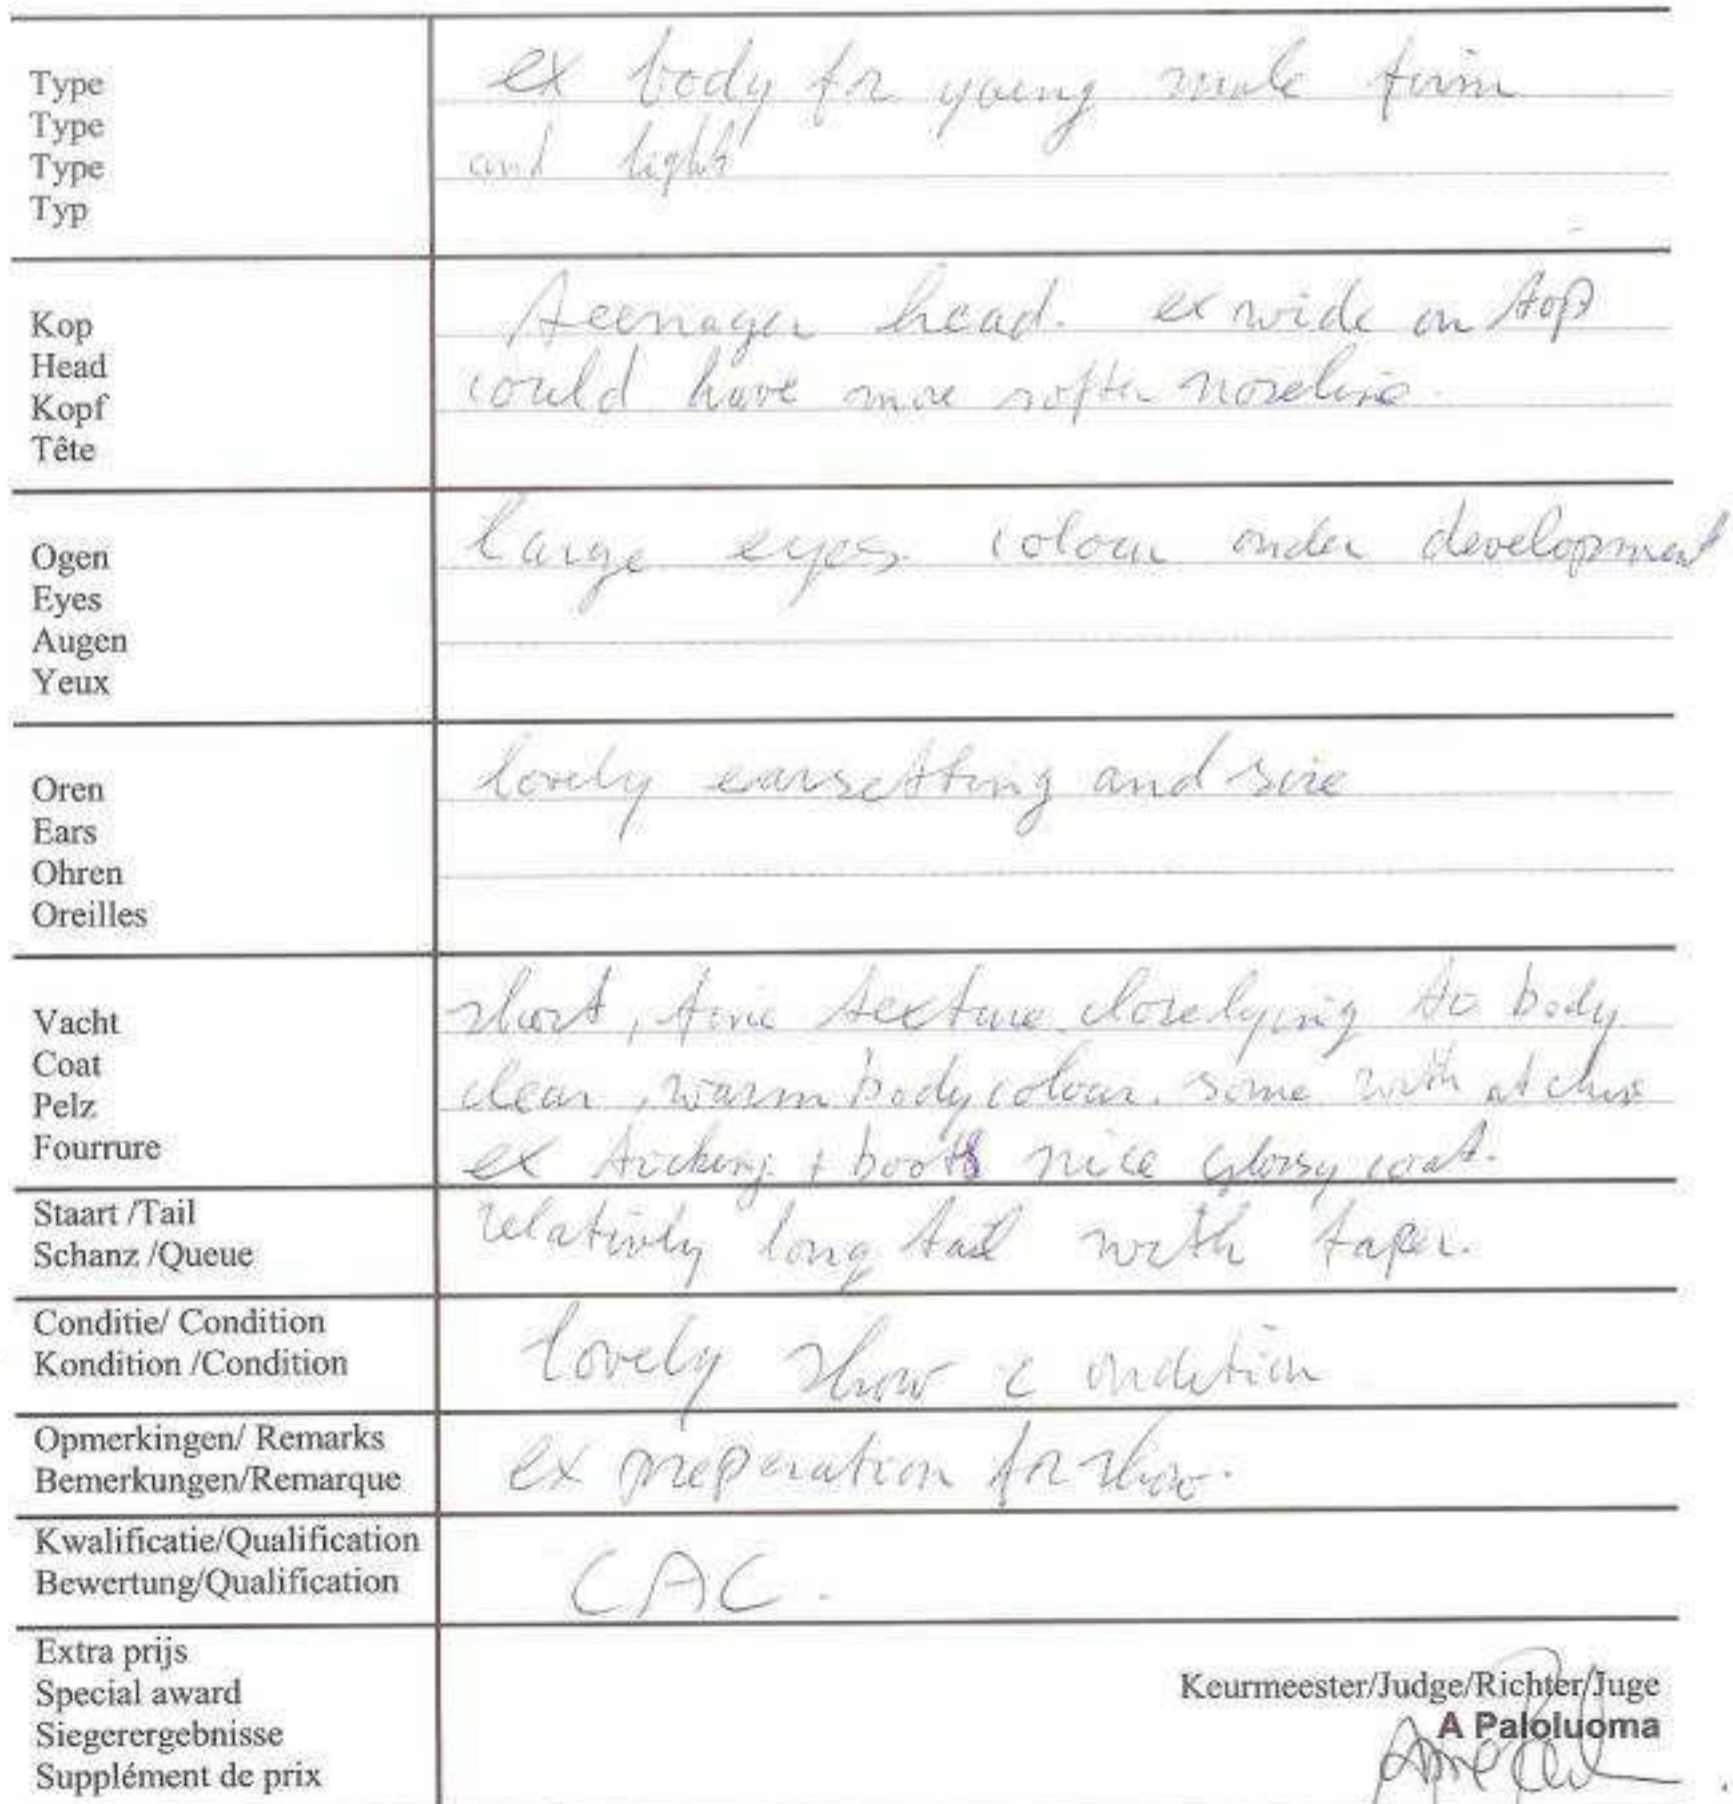 Type
Type
Type
Typ
ex body for young male firm
and light
Kop
Head
Kopf
Tête
teenager head. ex wide on top
could have more softer noseline.
Ogen
Eyes
Augen
Yeux
large eyes colour under development
Oren
Ears
Ohren
Oreilles
lovely earsetting and size
Vacht
Coat
Pelz
Fourrure
short, fine texture closelying to body
clear, warm body colour. some with at
ex ticking + boots nice glossy coat.
Staart /Tail
Schanz /Queue
relativly long tail with taper.
Conditie/ Condition
Kondition /Condition
lovely show condition
Opmerkingen/ Remarks
Bemerkungen/Remarque
ex preperation for show.
Kwalificatie/Qualification
Bewertung/Qualification
CAC.
Extra prijs
Special award
Siegerergebnisse
Supplément de prix
Keurmeester/Judge/Richter/Juge
A Paloluoma